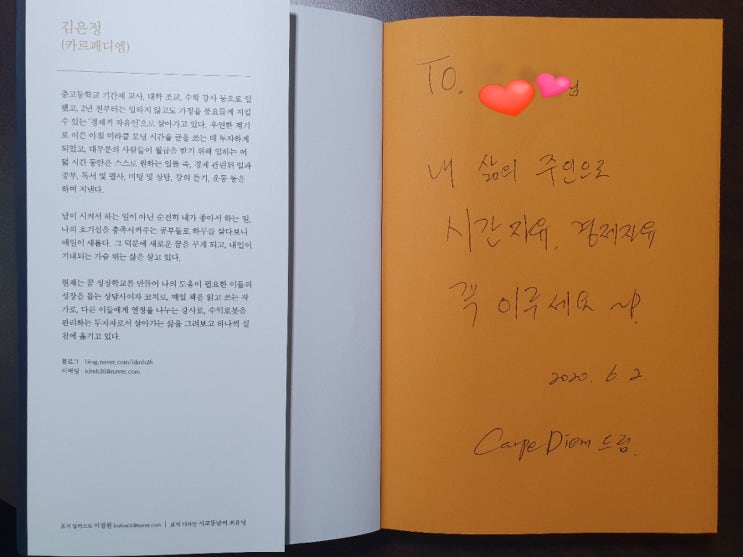 김은정
(카르페디엠)
중고등학교 기간제 교사, 대학 조교, 수학 강사 등으로 일
했고, 2년 전부터는 일하지 않고도 가정을 풍요롭게 지킬
수 있는 '경제적 자유인'으로 살아가고 있다. 우연한 계기
로 이른 아침 미라클 모닝 시간을 글을 쓰는 데 투자하게
되었고, 대부분의 사람들이 월급을 받기 위해 일하는 여
덟 시간 동안은 스스로 원하는 일들 즉, 경제 관련된 일과
공부, 독서 및 필사, 미팅 및 상담, 강의 듣기, 운동 등을
하며 지낸다.
남이 시켜서 하는 일이 아닌 순전히 내가 좋아서 하는 일,
나의 호기심을 충족시켜주는 공부들로 하루를 살다보니
매일이 새롭다. 그 덕분에 새로운 꿈을 꾸게 되고, 내일이
기대되는 가슴 뛰는 삶을 살고 있다.
현재는 꿈 성장학교를 만들어 나의 도움이 필요한 이들의
성장을 돕는 상담사이자 코치로, 매일 책을 읽고 쓰는 작
가로, 다른 이들에게 열정을 나누는 강사로, 수익로봇을
관리하는 투자자로서 살아가는 삶을 그려보고 하나씩 실
천에 옮기고 있다.
블로그 · blog.naver.com/idmb26
이메일 · idmb26@naver.com
표지 일러스트 | 표지 디자인
TO. 님
내 삶의 주인으로
시간자유, 경제자유
꼭 이루세요 ~!
2020. 6. 2.
Carpe Diem 드림.